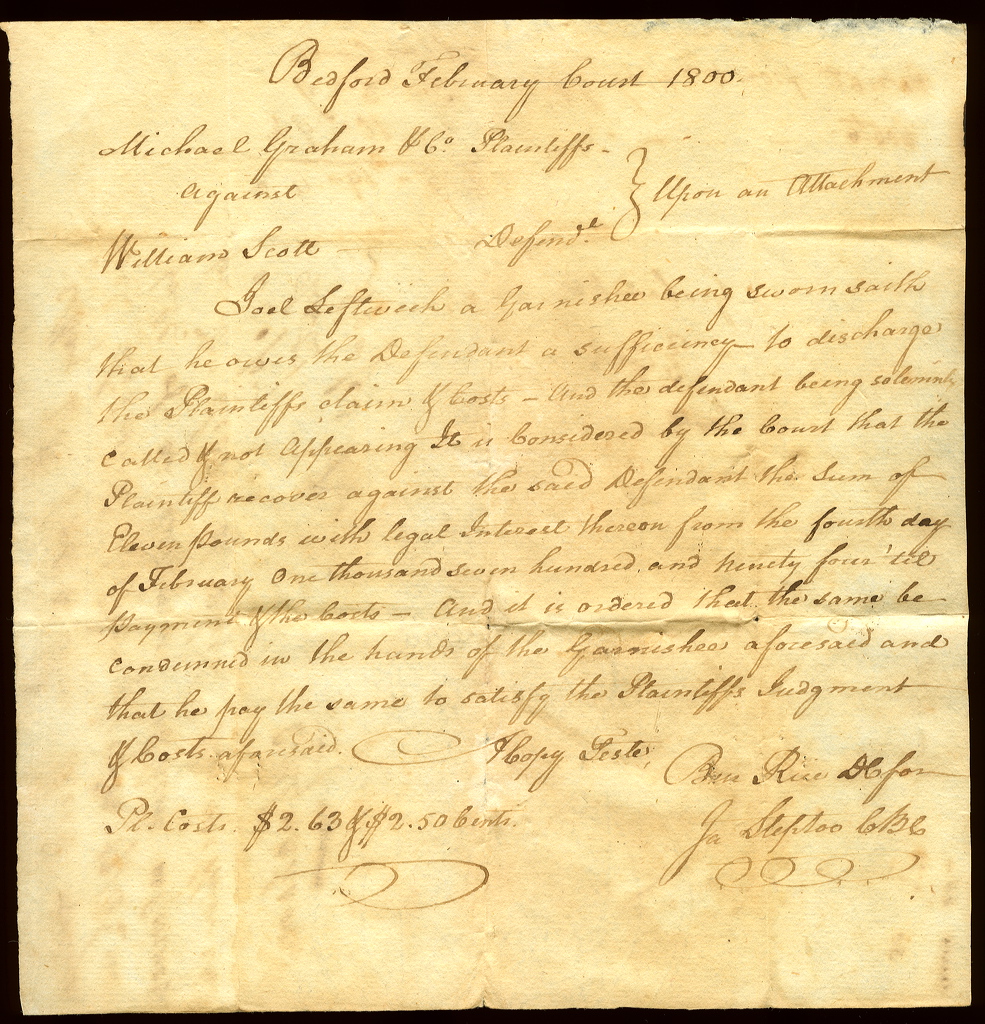 Bedford February Court 1800.
Michael Graham & Co. Plaintiffs -
against
} Upon an Attachment
William Scott Defendt.
Joel Leftwich a Garnishee being sworn saith
that he owes the Defendant a sufficiency to discharge
the Plaintiffs claim & Costs - And the defendant being solemnly
called & not Appearing It is Considered by the Court that the
Plaintiff recover against the said Defendant the Sum of
Eleven pounds with legal Interest thereon from the fourth day
of February One thousand seven hundred and ninety four 'til
payment & the Costs - And it is ordered that the same be
condemned in the hands of the Garnishee aforesaid and
that he pay the same to satisfy the Plaintiffs Judgment
& Costs aforesaid. A Copy Teste,
Ben Rice DC for
Pl. Costs. $2.63 & $2.50 Cents.
Ja Steptoe CBC